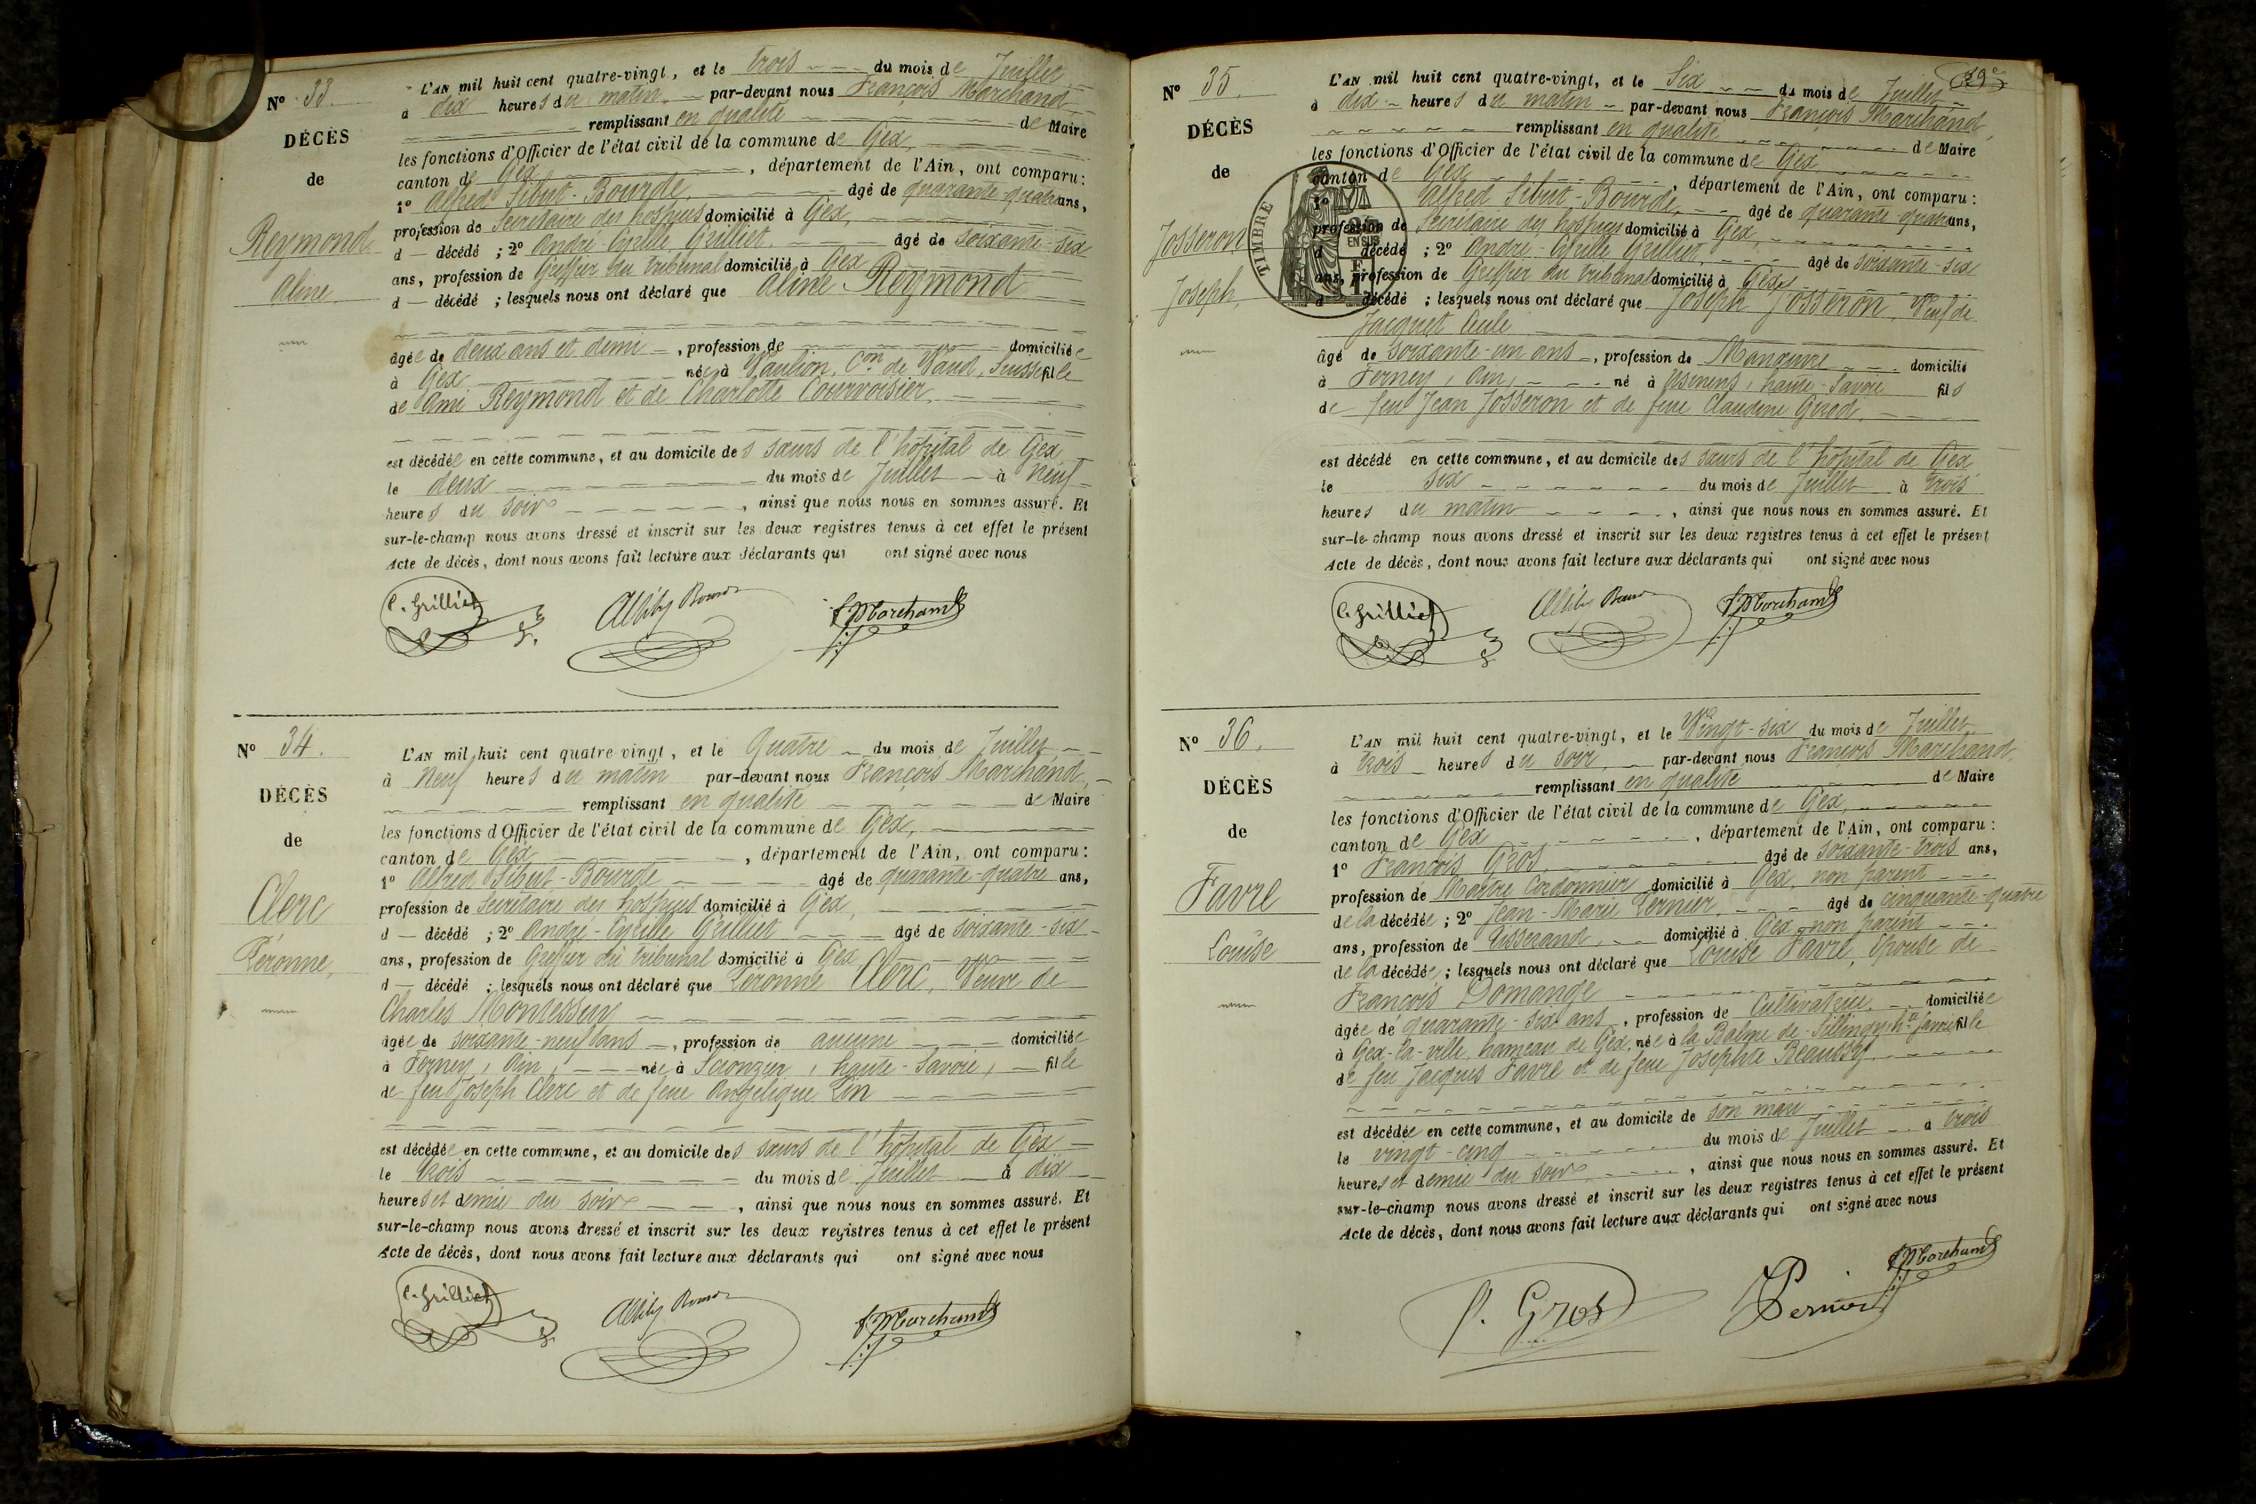 N° 33.
DÉCÈS
de
Reymond
Aline
L'AN mil huit cent quatre-vingt, et le trois du mois de Juillet
à dix heures du matin par-devant nous François Marchand
remplissant en qualité de Maire
les fonctions d'Officier de l'état civil de la commune de Gex,
canton de Gex, département de l'Ain, ont comparu:
1° Alfred Sibut-Bourde, âgé de quarante-quatre ans,
profession de Secrétaire des hospices domicilié à Gex,
d décédé ; 2° André-Cyrille Grilliet. âgé de soixante-six
ans, profession de Greffier du tribunal domicilié à Gex
d décédé ; lesquels nous ont déclaré que Aline Reymond
âgée de deux ans et demi, profession de domiciliée
à Gex née à Vaulion, Con de Vaud, Suisse fille
de Ami Reymond et de Charlotte Courvoisier,
est décédée en cette commune, et au domicile des sœurs de l'hôpital de Gex
le deux du mois de Juillet à neuf
heures du soir, ainsi que nous nous en sommes assuré. Et
sur-le-champ nous avons dressé et inscrit sur les deux registres tenus à cet effet le présent
Acte de décès, dont nous avons fait lecture aux déclarants qui ont signé avec nous
C. Grilliet F. Marchand
N° 34.
DÉCÈS
de
Clerc
Péronne,
L'AN mil huit cent quatre-vingt, et le Quatre du mois de Juillet
à neuf heures du matin par-devant nous François Marchand,
remplissant en qualité de Maire
les fonctions d'Officier de l'état civil de la commune de Gex,
canton de Gex, département de l'Ain, ont comparu:
1° Alfred Sibut-Bourde âgé de quarante-quatre ans,
profession de Secrétaire des hospices domicilié à Gex,
d décédé ; 2° André-Cyrille Grilliet âgé de soixante-six
ans, profession de Greffier du tribunal domicilié à Gex
d décédé ; lesquels nous ont déclaré que Péronne Clerc, Veuve de
Charles Montessuy
âgée de soixante-neuf ans, profession de aucune domiciliée
à Ferney, Ain, née à Scionzier, haute-Savoie, fille
de feu Joseph Clerc et de feue Angélique Pin
est décédée en cette commune, et au domicile des sœurs de l'hôpital de Gex
le trois du mois de Juillet à dix
heures et demie du soir, ainsi que nous nous en sommes assuré. Et
sur-le-champ nous avons dressé et inscrit sur les deux registres tenus à cet effet le présent
Acte de décès, dont nous avons fait lecture aux déclarants qui ont signé avec nous
C. Grilliet F. Marchand
N° 35.
DÉCÈS
de
Josseron
Joseph,
TIMBRE
EN SUS
L'AN mil huit cent quatre-vingt, et le Six du mois de Juillet
à dix heures du matin par-devant nous François Marchand,
remplissant en qualité de Maire
les fonctions d'Officier de l'état civil de la commune de Gex
canton de Gex, département de l'Ain, ont comparu:
1° Alfred Sibut-Bourde, âgé de quarante-quatre ans,
profession de Secrétaire des hospices domicilié à Gex,
d décédé ; 2° André-Cyrille Grilliet, âgé de soixante-six
ans, profession de Greffier du tribunal domicilié à Gex
d décédé ; lesquels nous ont déclaré que Joseph Josseron, Veuf de
Jacquet
âgé de soixante-un ans, profession de Manœuvre domicilié
à Ferney, Ain, né à Usinens, haute-Savoie fils
de feu Jean Josseron et de feue Claudine
est décédé en cette commune, et au domicile des sœurs de l'hôpital de Gex
le six du mois de Juillet à trois
heures du matin, ainsi que nous nous en sommes assuré. Et
sur-le-champ nous avons dressé et inscrit sur les deux registres tenus à cet effet le présent
Acte de décès, dont nous avons fait lecture aux déclarants qui ont signé avec nous
C. Grilliet F. Marchand
N° 36.
DÉCÈS
de
Favre
Louise
L'AN mil huit cent quatre-vingt, et le Vingt-six du mois de Juillet
à trois heures du soir, par-devant nous François Marchand,
remplissant en qualité de Maire
les fonctions d'Officier de l'état civil de la commune de Gex,
canton de Gex, département de l'Ain, ont comparu:
1° François Gros, âgé de soixante-trois ans,
profession de Maître Cordonnier domicilié à Gex, non parent
de la décédée ; 2° Jean-Marie Pernier, âgé de cinquante-quatre
ans, profession de tisserand, domicilié à Gex non parent
de la décédée ; lesquels nous ont déclaré que Louise Favre, épouse de
François Domange
âgée de quarante-six ans, profession de Cultivatrice, domiciliée
à Gex-la-ville, hameau de Gex, née à la Balme de Sillingy hte Savoie fille
de feu Jacques Favre et de feue Josephte
est décédée en cette commune, et au domicile de son mari
le vingt-cinq du mois de Juillet à trois
heures et demie du soir, ainsi que nous nous en sommes assuré. Et
sur-le-champ nous avons dressé et inscrit sur les deux registres tenus à cet effet le présent
Acte de décès, dont nous avons fait lecture aux déclarants qui ont signé avec nous
F. Gros Pernier F. Marchand